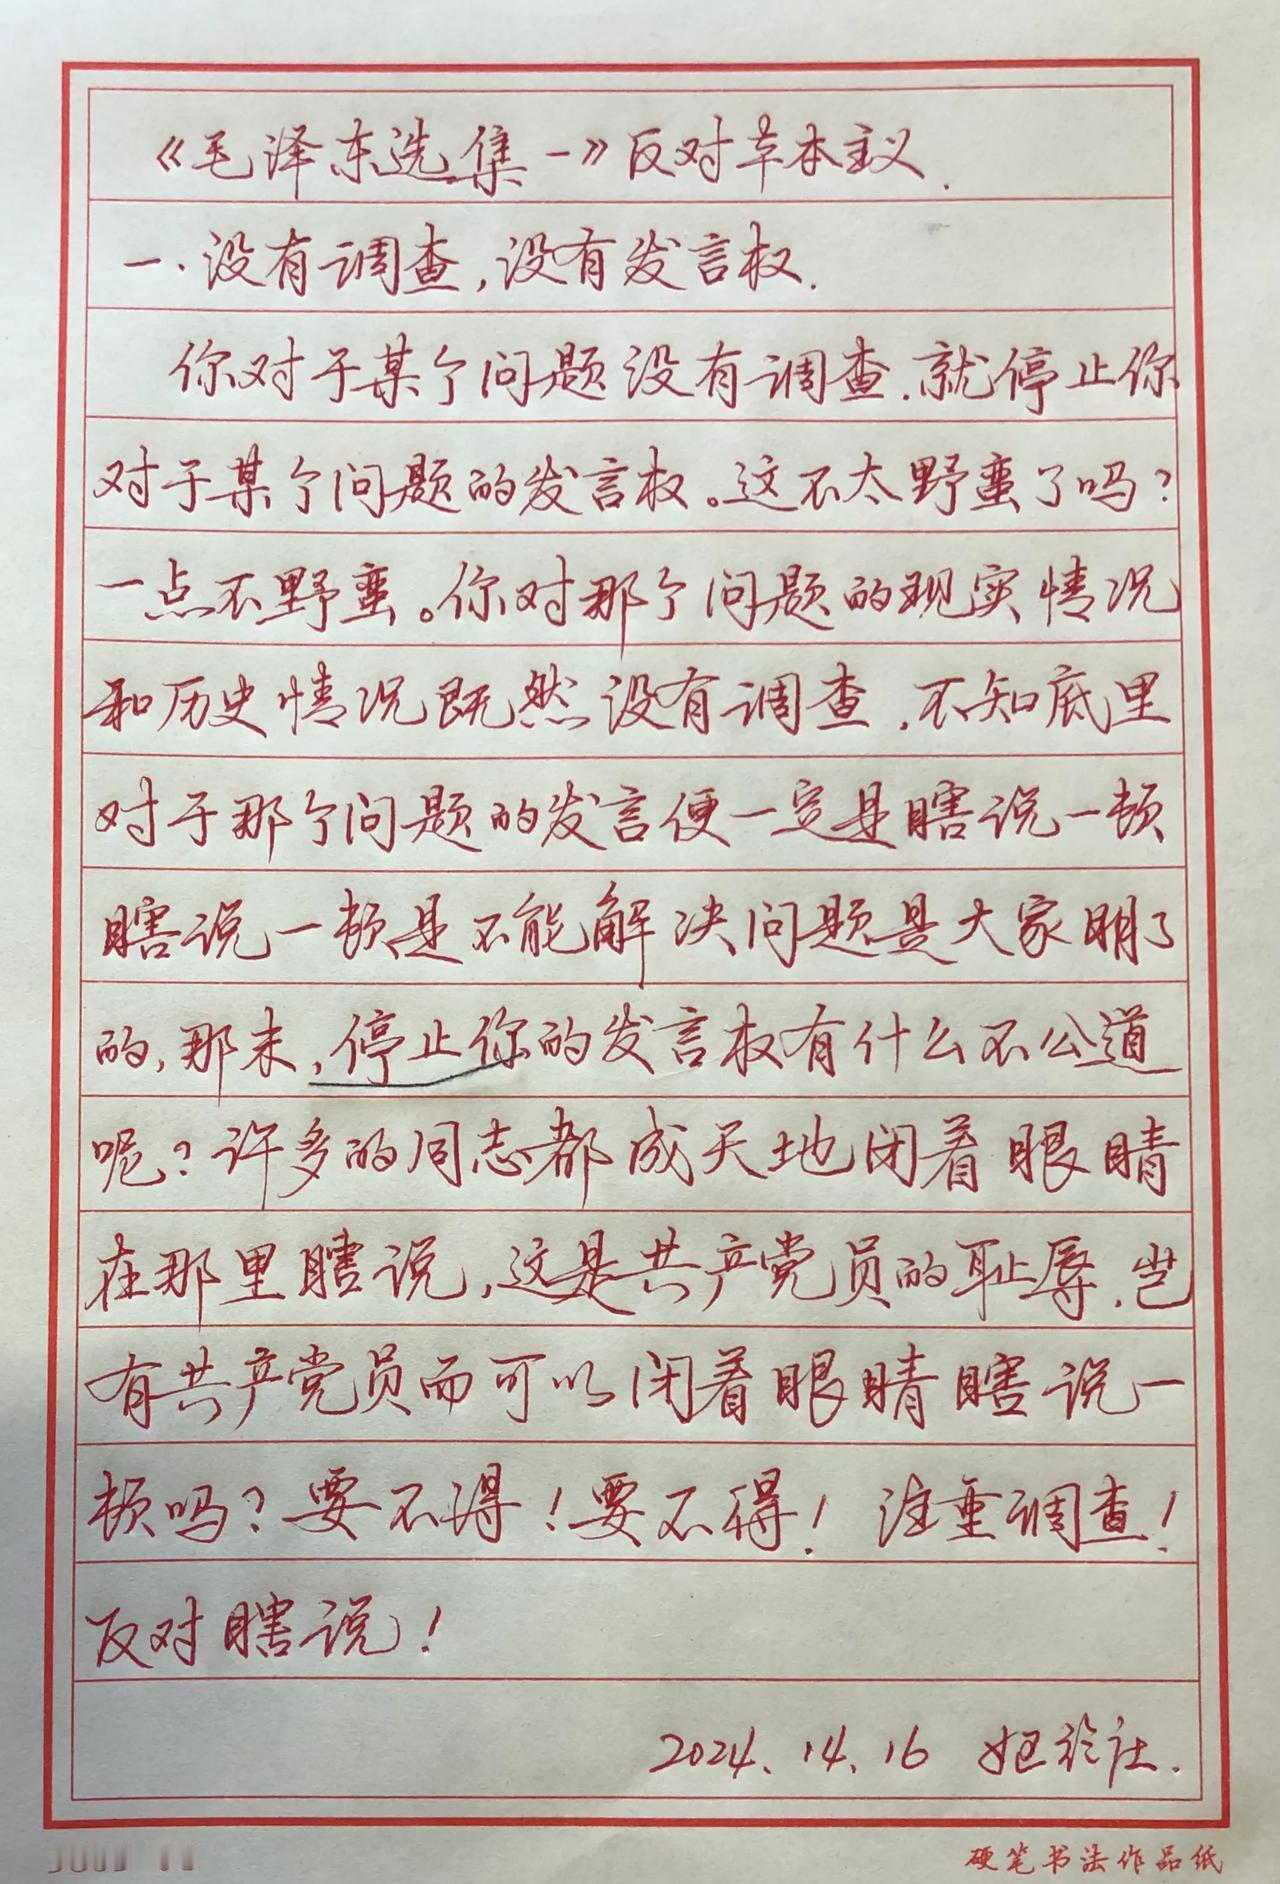 《毛泽东选集一》反对草本主义.
一.没有调查,没有发言权.
你对于某个问题没有调查.就停止你
对于某个问题的发言权。这不太野蛮了吗?
一点不野蛮。你对那个问题的现实情况
和历史情况既然没有调查,不知底里
对于那个问题的发言便一定是瞎说一顿
瞎说一顿是不能解决问题是大家明了
的,那末,停止你的发言权有什么不公道
呢?许多的同志都成天地闭着眼睛
在那里瞎说,这是共产党员的耻辱.岂
有共产党员而可以闭着眼睛瞎说一
顿吗?要不得!要不得!注重调查!
反对瞎说!
2024.14.16
硬笔书法作品纸